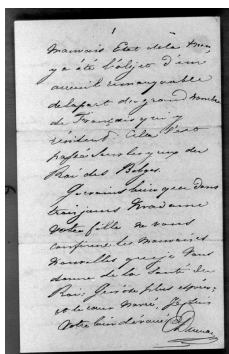 mauvais Etat de la mer,
y a été l'objet d'un
accueil remarquable
de la part du grand nombre
de Français qui y
résident. Cela s'est
passé sous les yeux du
Roi des Belges.
Je crains bien que dans
trois jours Madame
votre fille ne vous
confirme les mauvaises
nouvelles que je vous
donne de la santé du
Roi. Je n'ai plus espoir,
et le cœur navré, je suis
Votre bien dévoué